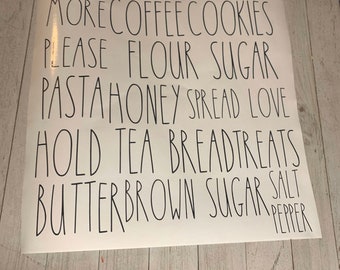 MORE COFFEE COOKIES
PLEASE FLOUR SUGAR
PASTA HONEY SPREAD LOVE
HOLD TEA BREAD TREATS
BUTTER BROWN SUGAR SALT
PEPPER